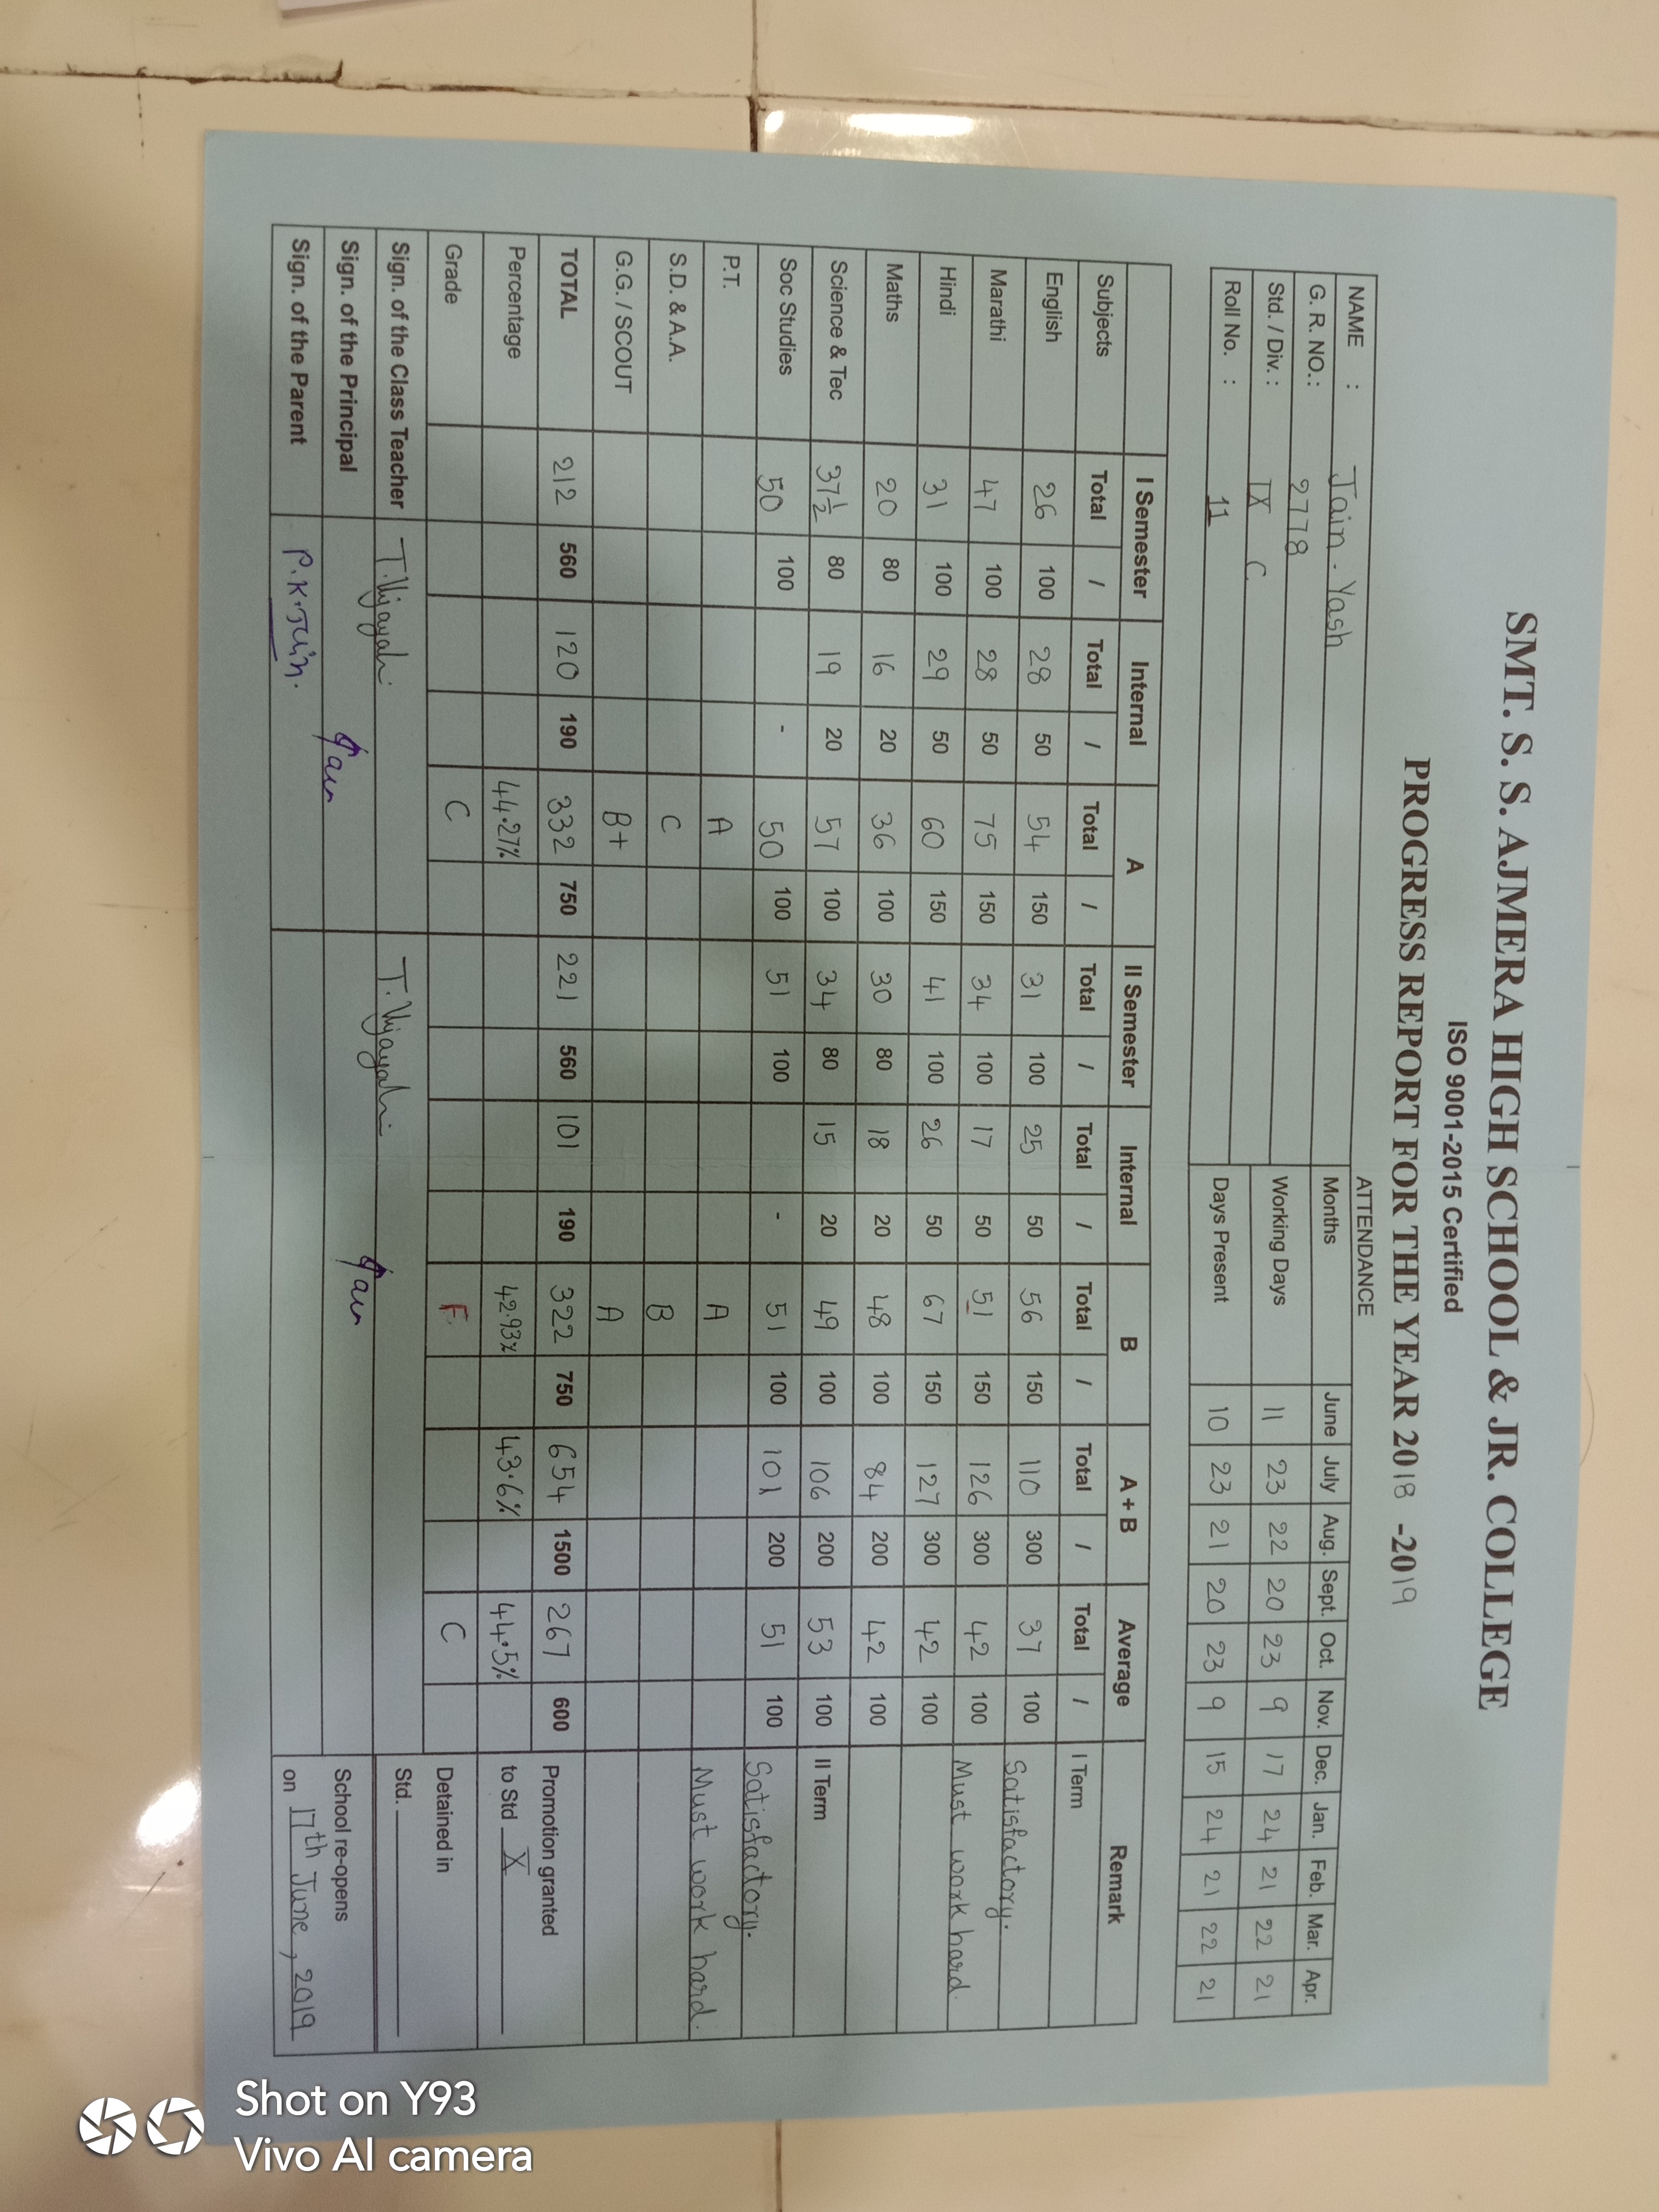 SMT. S. S. AJMERA HIGH SCHOOL & JR. COLLEGE
ISO 9001-2015 Certified
PROGRESS REPORT FOR THE YEAR 2018 -2019
NAME : Jain. Yash
G. R. NO.: 2778
Std. / Div. : IX C
Roll No. : 11
ATTENDANCE
Months June July Aug. Sept. Oct. Nov. Dec. Jan. Feb. Mar. Apr.
Working Days 11 23 22 20 23 9 17 24 21 22 21
Days Present 10 23 21 20 23 9 15 24 21 22 21
I Semester Internal A II Semester Internal B A + B Average Remark
Subjects Total / Total / Total / Total / Total / Total / Total / Total / I Term
English 26 100 28 50 54 150 31 100 25 50 56 150 110 300 37 100 Satisfactory.
Marathi 47 100 28 50 75 150 34 100 17 50 51 150 126 300 42 100 Must work hard.
Hindi 31 100 29 50 60 150 41 100 26 50 67 150 127 300 42 100
Maths 20 80 16 20 36 100 30 80 18 20 48 100 84 200 42 100
Science & Tec 37½ 80 19 20 57 100 34 80 15 20 49 100 106 200 53 100 II Term
Soc Studies 50 100 - 50 100 51 100 - 51 100 101 200 51 100 Satisfactory.
P.T. A A Must work hard.
S.D. & A.A. C B
G.G. / SCOUT B+ A
TOTAL 212 560 120 190 332 750 221 560 101 190 322 750 654 1500 267 600 Promotion granted
Percentage 44.27% 42.93% 43.6% 44.5% to Std X
Grade C F C Detained in
Sign. of the Class Teacher T. Vijayali T. Vijayali Std.
Sign. of the Principal School re-opens
Sign. of the Parent P.K.Jain. on 17th June, 2019
Shot on Y93
Vivo AI camera